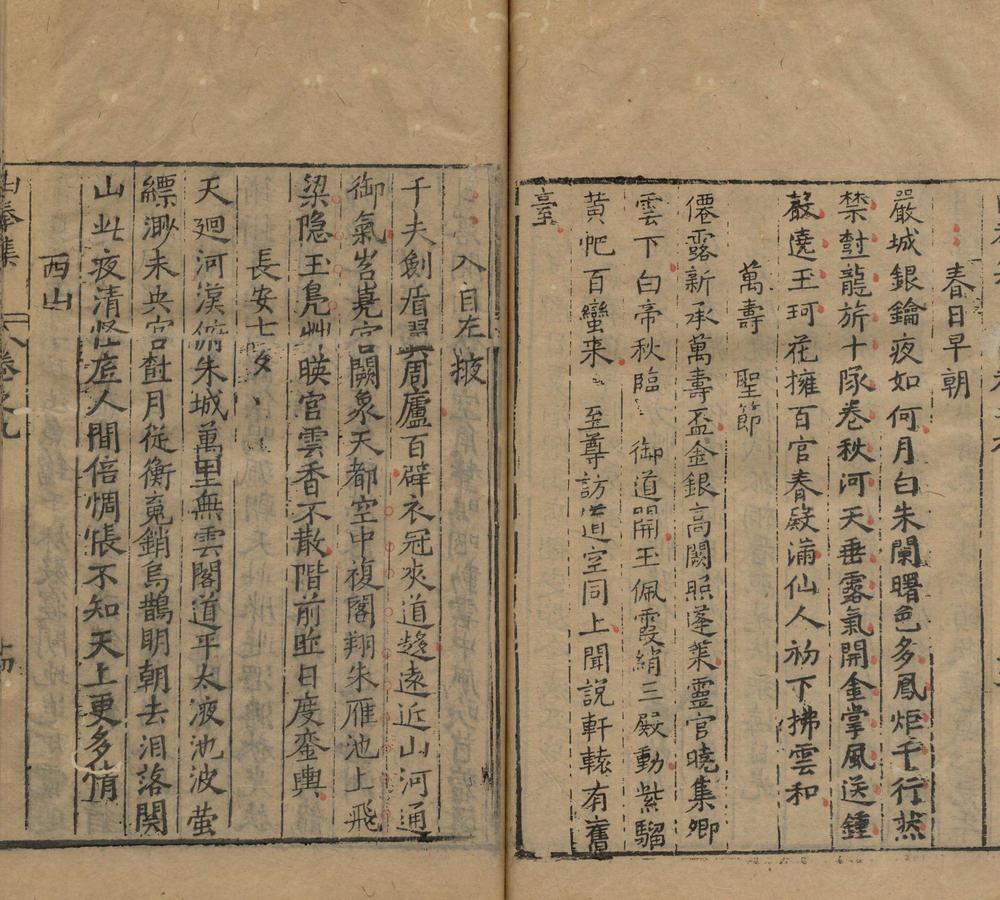 春日早朝
嚴城銀鑰夜如何月白朱闌曙色多鳳炬千行然
禁樹龍旂十隊卷秋河天垂露氣開金掌風送鍾
聲遶玉珂花擁百官春殿滿仙人初下拂雲和
萬壽聖節
僊露新承萬壽盃金銀高闕照蓬萊靈官曉集卿
雲下白帝秋臨御道開玉佩霞綃三殿動紫騮
黃帕百蠻來至尊訪道空同上聞說軒轅有舊
臺
入自左掖
千夫劍盾翼周廬百辟衣冠夾道趨遠近山河通
御氣岧嶤宮闕象天都空中複閣翔朱雁池上飛
梁隱玉鳧艸暎宮雲香不散階前昨日度鑾輿
長安七夕
天迴河漢俯朱城萬里無雲閣道平太液池波螢
縹渺未央宮樹月從衡寃銷烏鵲明朝去淚落関
山此夜清怪㡯人間倍惆悵不知天上更多情
西山
卷之九